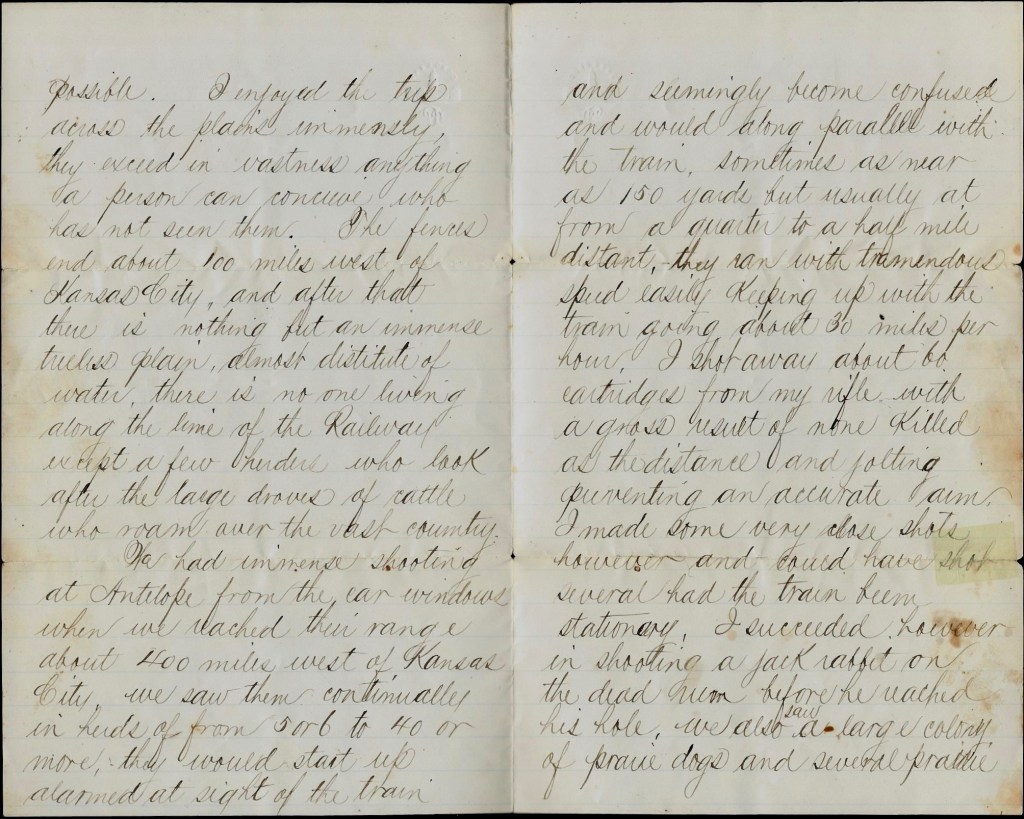 possible. I enjoyed the trip
across the plains immensly,
they exceed in vastness anything
a person can concieve who
has not seen them. The fences
end about 100 miles west, of
Kansas City, and after that
there is nothing but an immense
treeless plain, almost distitute of
water, there is no one living
along the line of the Railway
except a few herders who look
after the large droves of cattle
who roam over the vast country.
We had immense shooting
at Antelope from the car windows
when we reached their range
about 400 miles west of Kansas
City, we saw them continually
in herds of from 5 or 6 to 40 or
more, they would start up
alarmed at sight of the train
and seemingly become confused
and would along parallel with
the train, sometimes as near
as 150 yards but usually at
from a quarter to a half mile
distant, they ran with tramendous
speed easily Keeping up with the
train going about 30 miles per
hour. I shot away about 60
cartridges from my rifle with
a gross result of none Killed
as the distance and jolting
preventing an accurate aim.
I made some very close shots
however and could have shot
several had the train been
stationary, I succeeded however
in shooting a jack rabbit on
the dead run before he reached
his hole, we also saw a large colony
of prarie dogs and several prairie